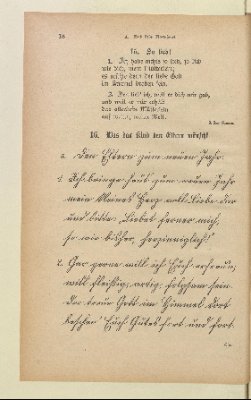 15. So lieb!
1. Ich habe mich so lieb, so lieb
wie dich, mein Mütterlein;
es müßte denn der liebe Gott
im Himmel droben sein.
2. Den lieb' ich, weil er dich mir gab,
und weil er mir erhält
das allerbeste Mütterlein
auf weiter, weiter Welt.
16. Was das Kind den Eltern wünscht
a. Den Eltern zum neuen Jahr.
1. Ich bringe heut zum neuen Jahr
mein kleines Herz voll Liebe dar
und bitte: Liebet ferner mich,
so wie bisher, herzinniglich!
2. Gar gerne will ich Euch erfreun,
will fleißig, artig, folgsam sein.
Der treue Gott im Himmel dort
bescher' Euch Gutes fort und fort.